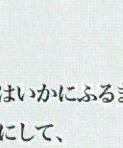 はいかにふるま
にして、